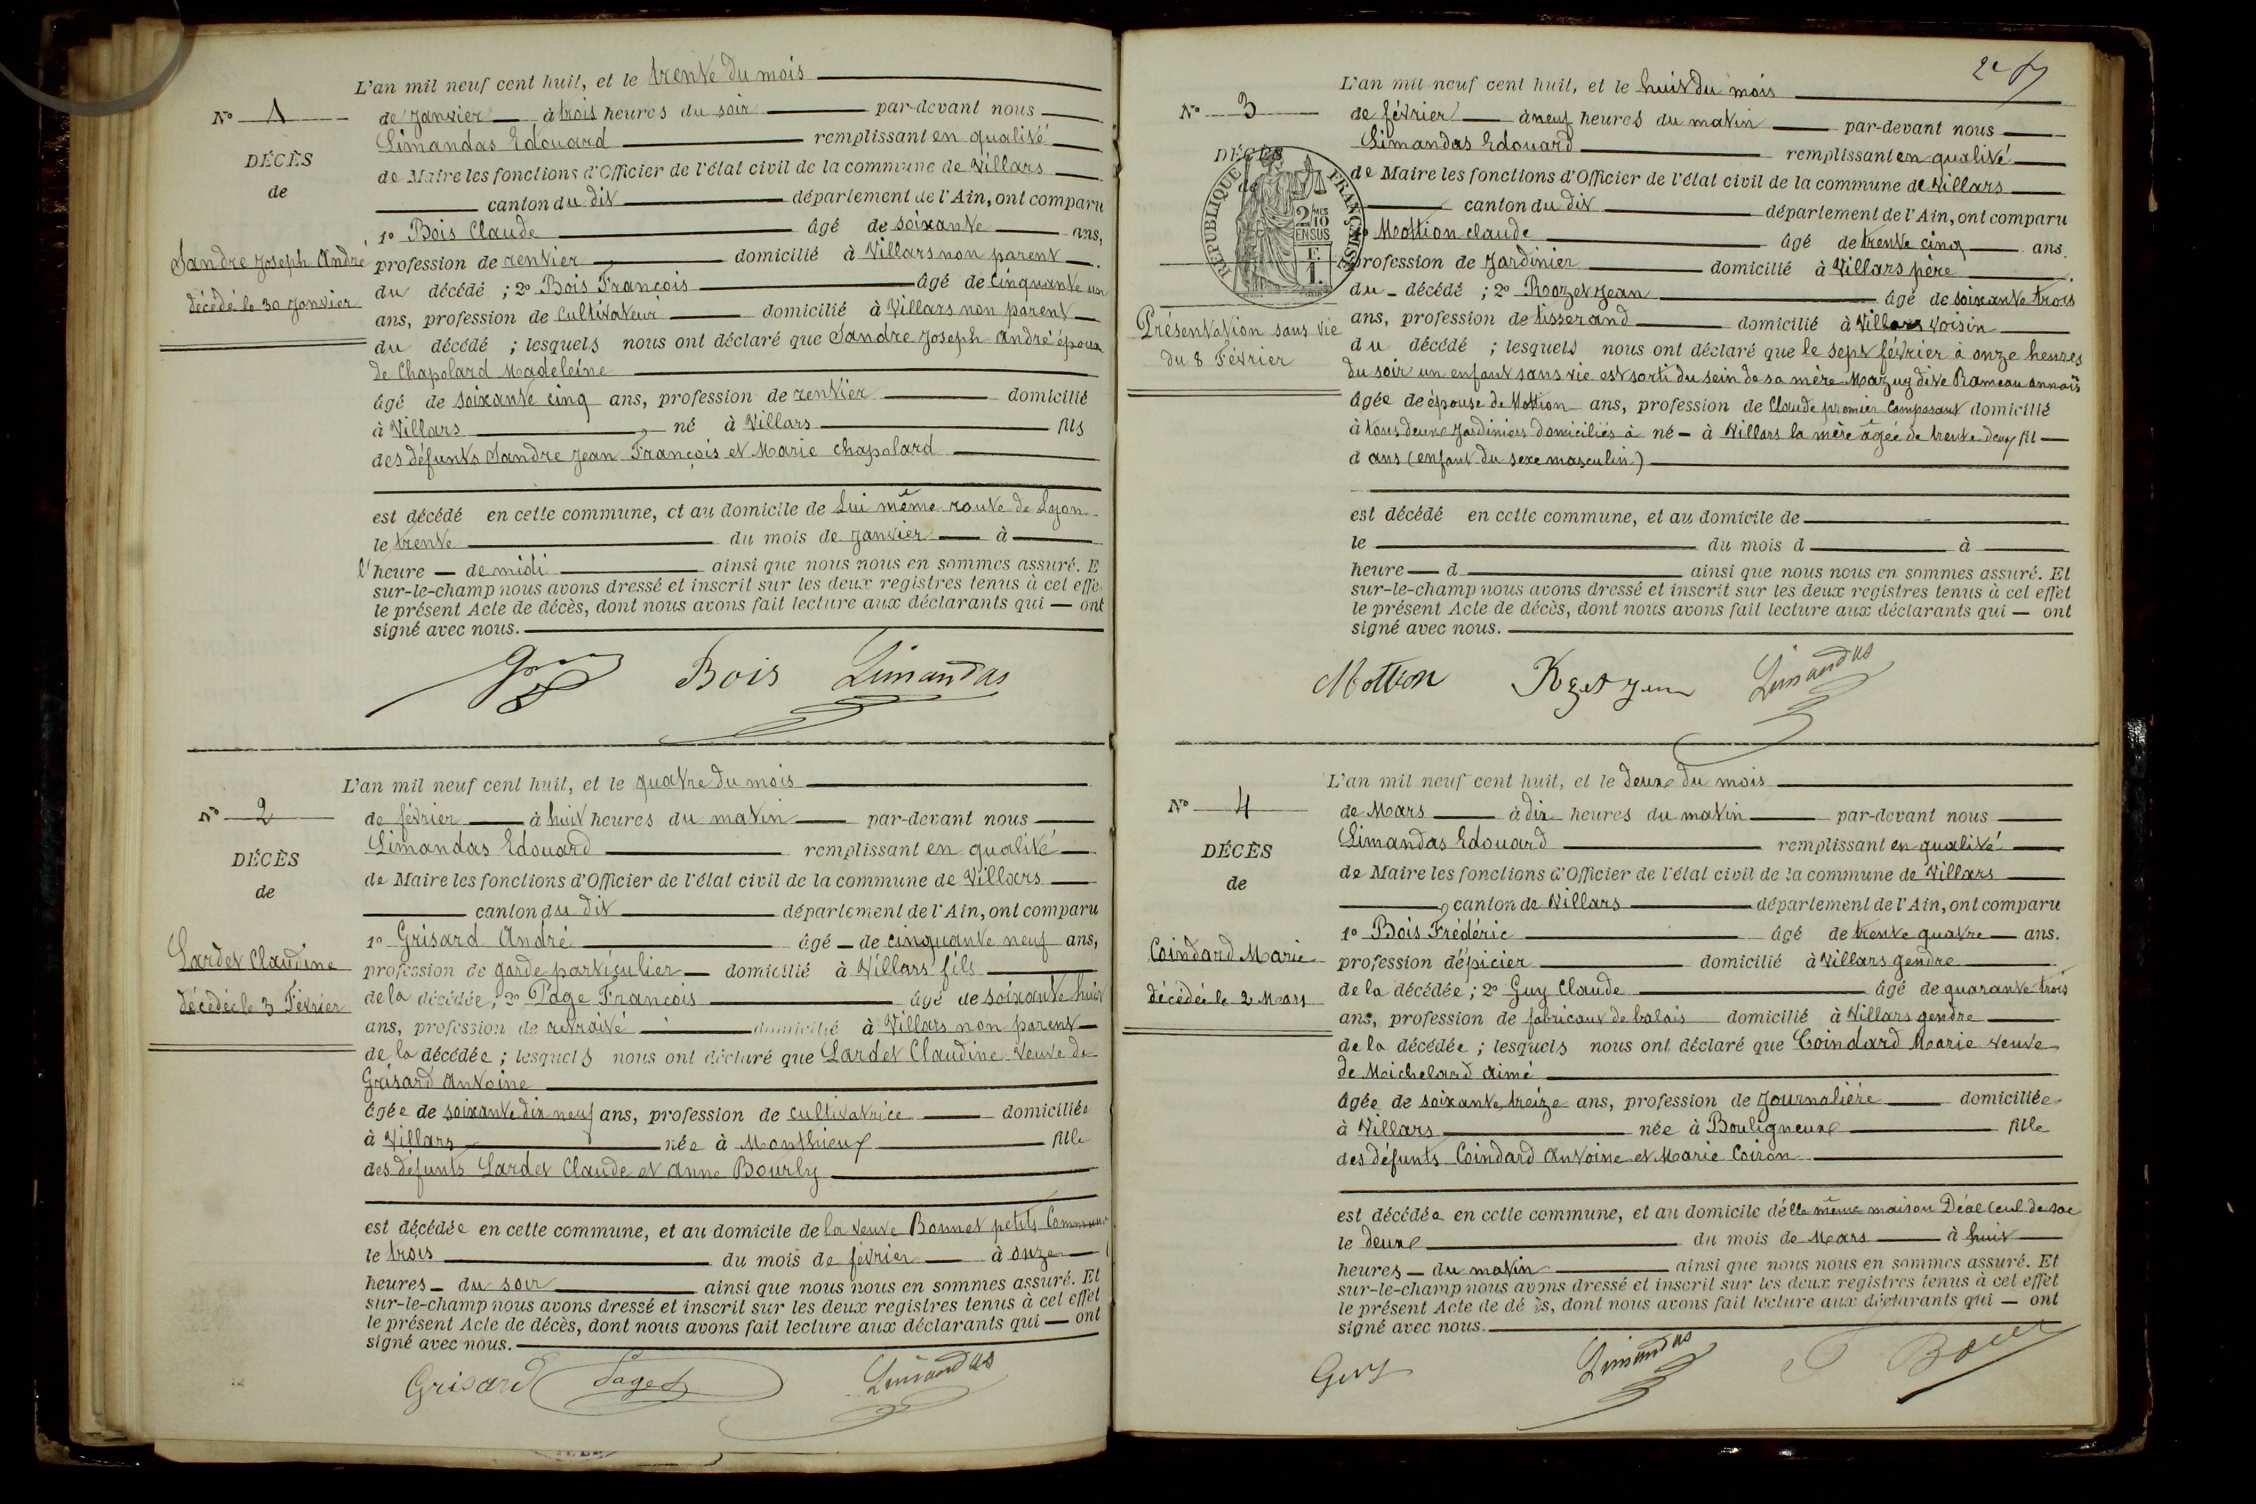 L'an mil neuf cent huit, et le trente du mois
N° 1
de Janvier à trois heures du soir par-devant nous
Limandas Edouard remplissant en qualité
DÉCÈS
de Maire les fonctions d'Officier de l'état civil de la commune de Villars
de
canton du dit département de l'Ain, ont comparu
1° Bois Claude âgé de soixante ans,
Sandre Joseph André
profession de rentier domicilié à Villars non parent
du décédé ; 2° Bois François âgé de Cinquante un
décédé le 30 Janvier
ans, profession de Cultivateur domicilié à Villars non parent
du décédé ; lesquels nous ont déclaré que Sandre Joseph André époux
de Chapolard Madeleine
âgé de soixante cinq ans, profession de rentier domicilié
à Villars, né à Villars fils
des défunts Sandre Jean François et Marie Chapolard
est décédé en cette commune, et au domicile de lui même route de Lyon
le trente du mois de Janvier à
l'heure de midi ainsi que nous nous en sommes assuré. E
sur-le-champ nous avons dressé et inscrit sur les deux registres tenus à cet effe
le présent Acte de décès, dont nous avons fait lecture aux déclarants qui ont
signé avec nous.
Bois Limandas
L'an mil neuf cent huit, et le quatre du mois
N° 2
de février à huit heures du matin par-devant nous
Limandas Edouard remplissant en qualité
DÉCÈS
de Maire les fonctions d'Officier de l'état civil de la commune de Villars
de
canton du dit département de l'Ain, ont comparu
1° Grisard André âgé de cinquante neuf ans,
Lardet Claudine
profession de garde particulier domicilié à Villars fils
de la décédée ; 2° Page François âgé de soixante huit
décédée le 3 Février
ans, profession de retraité domicilié à Villars non parent
de la décédée ; lesquels nous ont déclaré que Lardet Claudine veuve de
Grisard Antoine
âgée de soixante dix neuf ans, profession de cultivatrice domiciliée
à Villars née à Monthieux fille
des défunts Lardet Claude et Anne Bourly
est décédée en cette commune, et au domicile de la veuve Bonnet petits Communaux
le trois du mois de février à onze
heures du soir ainsi que nous nous en sommes assuré. Et
sur-le-champ nous avons dressé et inscrit sur les deux registres tenus à cet effet
le présent Acte de décès, dont nous avons fait lecture aux déclarants qui ont
signé avec nous.
Grisard Page Limandas
2e
L'an mil neuf cent huit, et le huit du mois
N° 3
de février à neuf heures du matin par-devant nous
Limandas Edouard remplissant en qualité
DÉCÈS
de
RÉPUBLIQUE FRANÇAISE
2/10 EN SUS
de Maire les fonctions d'Officier de l'état civil de la commune de Villars
canton du dit département de l'Ain, ont comparu
Mottion Claude âgé de trente cinq ans.
profession de Jardinier domicilié à Villars père
du décédé ; 2° Rozet Jean âgé de soixante trois
Présentation sans vie
du 8 Février
ans, profession de tisserand domicilié à Villars voisin
du décédé ; lesquels nous ont déclaré que le sept février à onze heures
du soir un enfant sans vie est sorti du sein de sa mère Mazuy dite Rameau Annaïs
âgée de épouse de Mottion ans, profession de Claude premier comparant domicilié
à tous deux Jardiniers domiciliés à né à Villars la mère âgée de trente deux fil
d ans (enfant du sexe masculin)
est décédé en cette commune, et au domicile de
le du mois d à
heure d ainsi que nous nous en sommes assuré. Et
sur-le-champ nous avons dressé et inscrit sur les deux registres tenus à cet effet
le présent Acte de décès, dont nous avons fait lecture aux déclarants qui ont
signé avec nous.
Mottion Rozet Jean Limandas
L'an mil neuf cent huit, et le deux du mois
N° 4
de Mars à dix heures du matin par-devant nous
Limandas Edouard remplissant en qualité
DÉCÈS
de Maire les fonctions d'Officier de l'état civil de la commune de Villars
de
, canton de Villars département de l'Ain, ont comparu
1° Bois Frédéric âgé de trente quatre ans.
Coindard Marie
profession d'épicier domicilié à Villars gendre
de la décédée ; 2° Guy Claude âgé de quarante trois
décédée le 2 Mars
ans, profession de fabricant de balais domicilié à Villars gendre
de la décédée ; lesquels nous ont déclaré que Coindard Marie veuve
de Moichelard Aimé
âgée de soixante treize ans, profession de Journalière domiciliée
à Villars née à Bouligneux fille
des défunts Coindard Antoine et Marie Coiron
est décédée en cette commune, et au domicile d'elle même maison Déal Ceul de sac
le deux du mois de Mars à huit
heures du matin ainsi que nous nous en sommes assuré. Et
sur-le-champ nous avons dressé et inscrit sur les deux registres tenus à cet effet
le présent Acte de dé ès, dont nous avons fait lecture aux déclarants qui ont
signé avec nous.
Guy Limandas F Bois